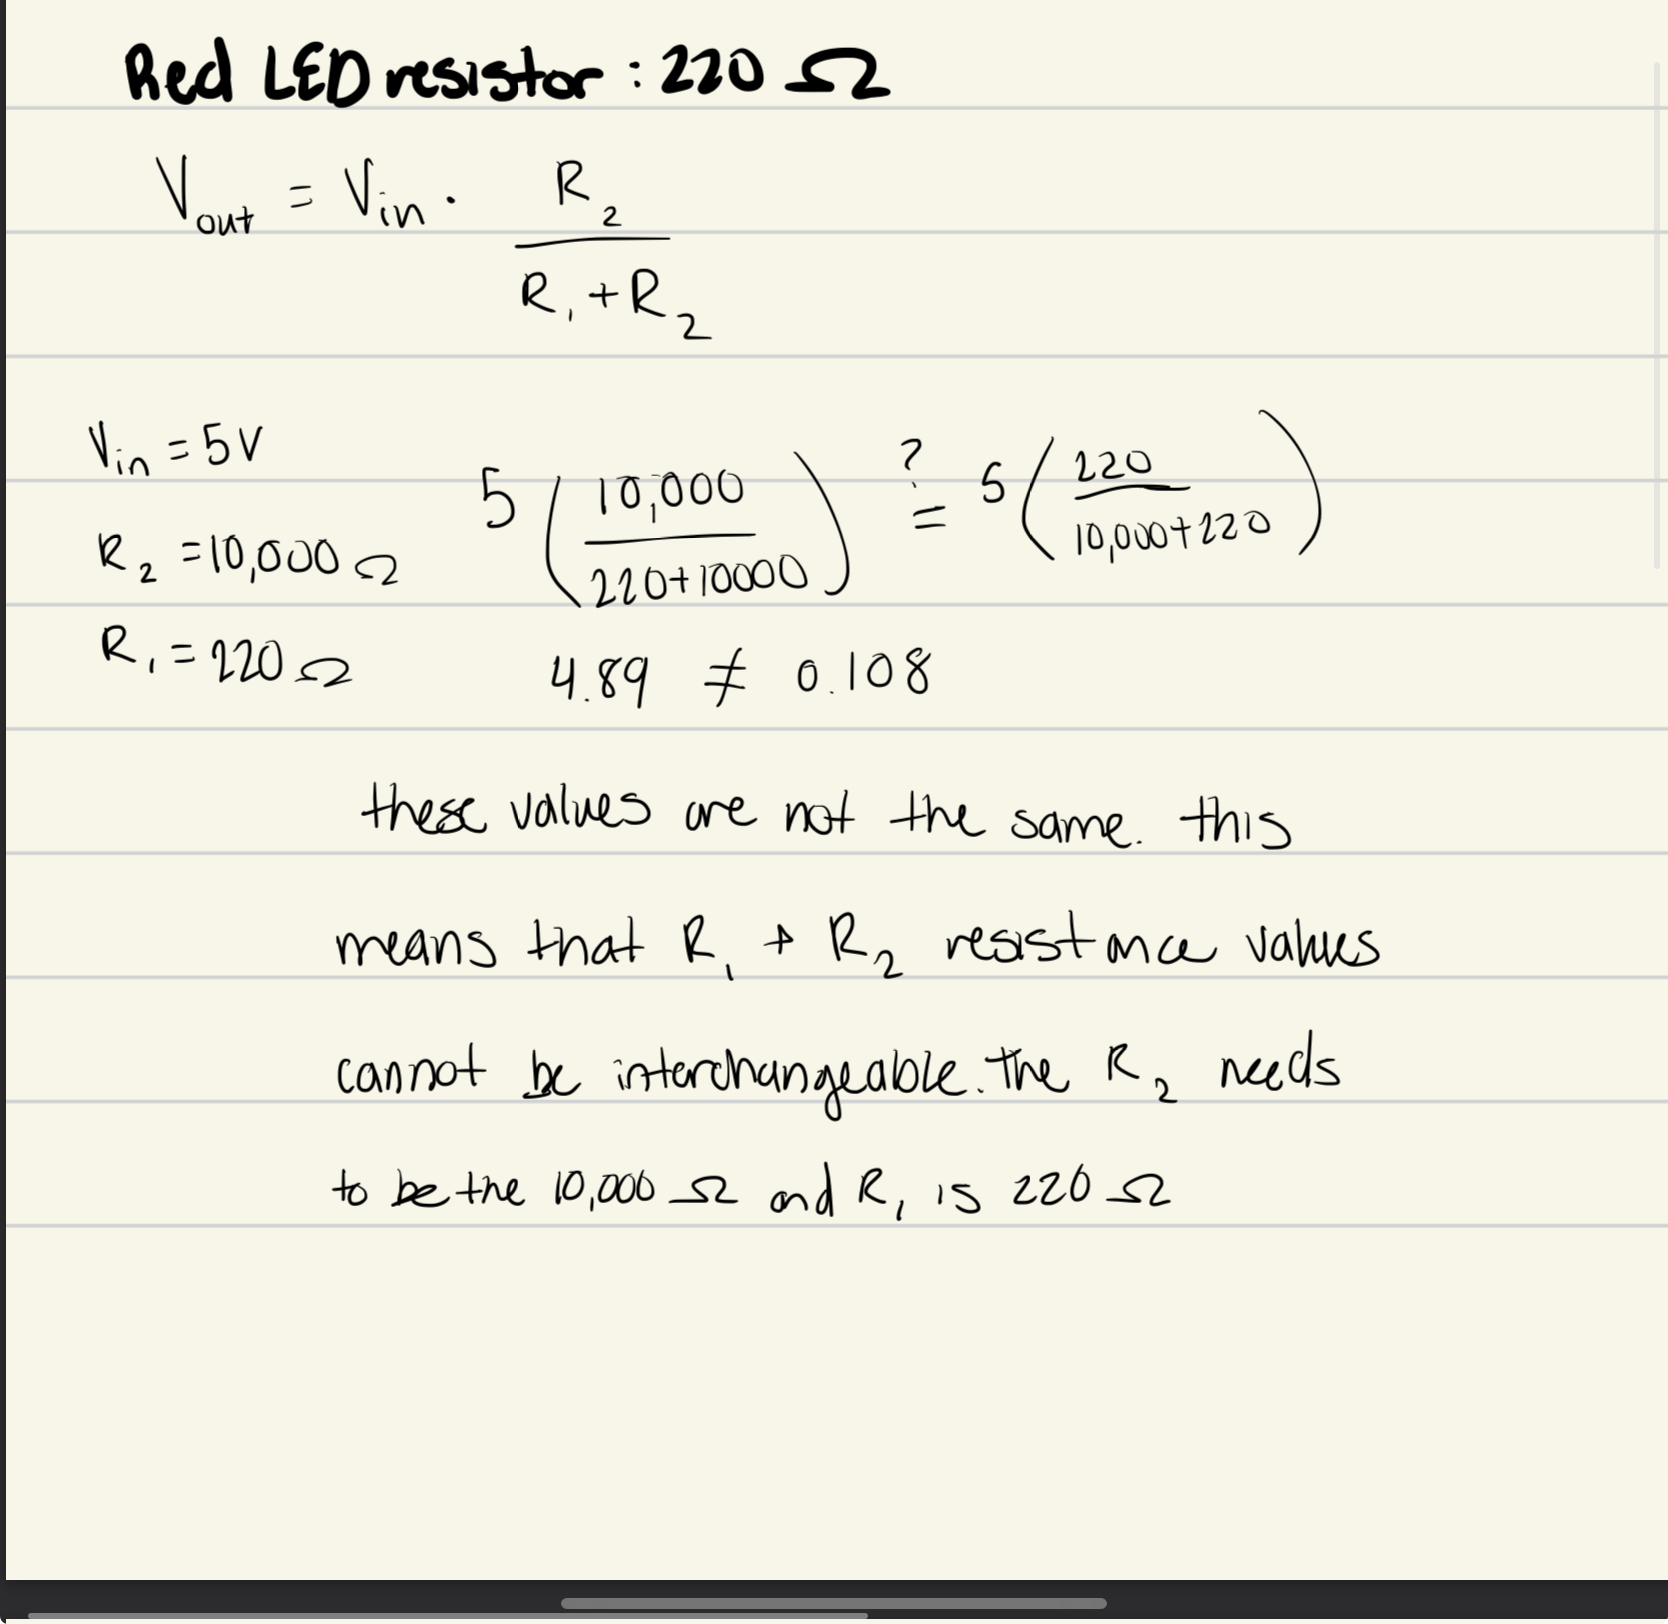 Red LED resistor : 220 Ω
Vout = Vin · R2 / (R1 + R2)
Vin = 5V
R2 = 10,000 Ω
R1 = 220 Ω
5 (10,000 / (220+10000)) ?= 5 (220 / (10,000+220))
4.89 ≠ 0.108
these values are not the same. this
means that R1 + R2 resistance values
cannot be interchangeable. The R2 needs
to be the 10,000 Ω and R1 is 220 Ω